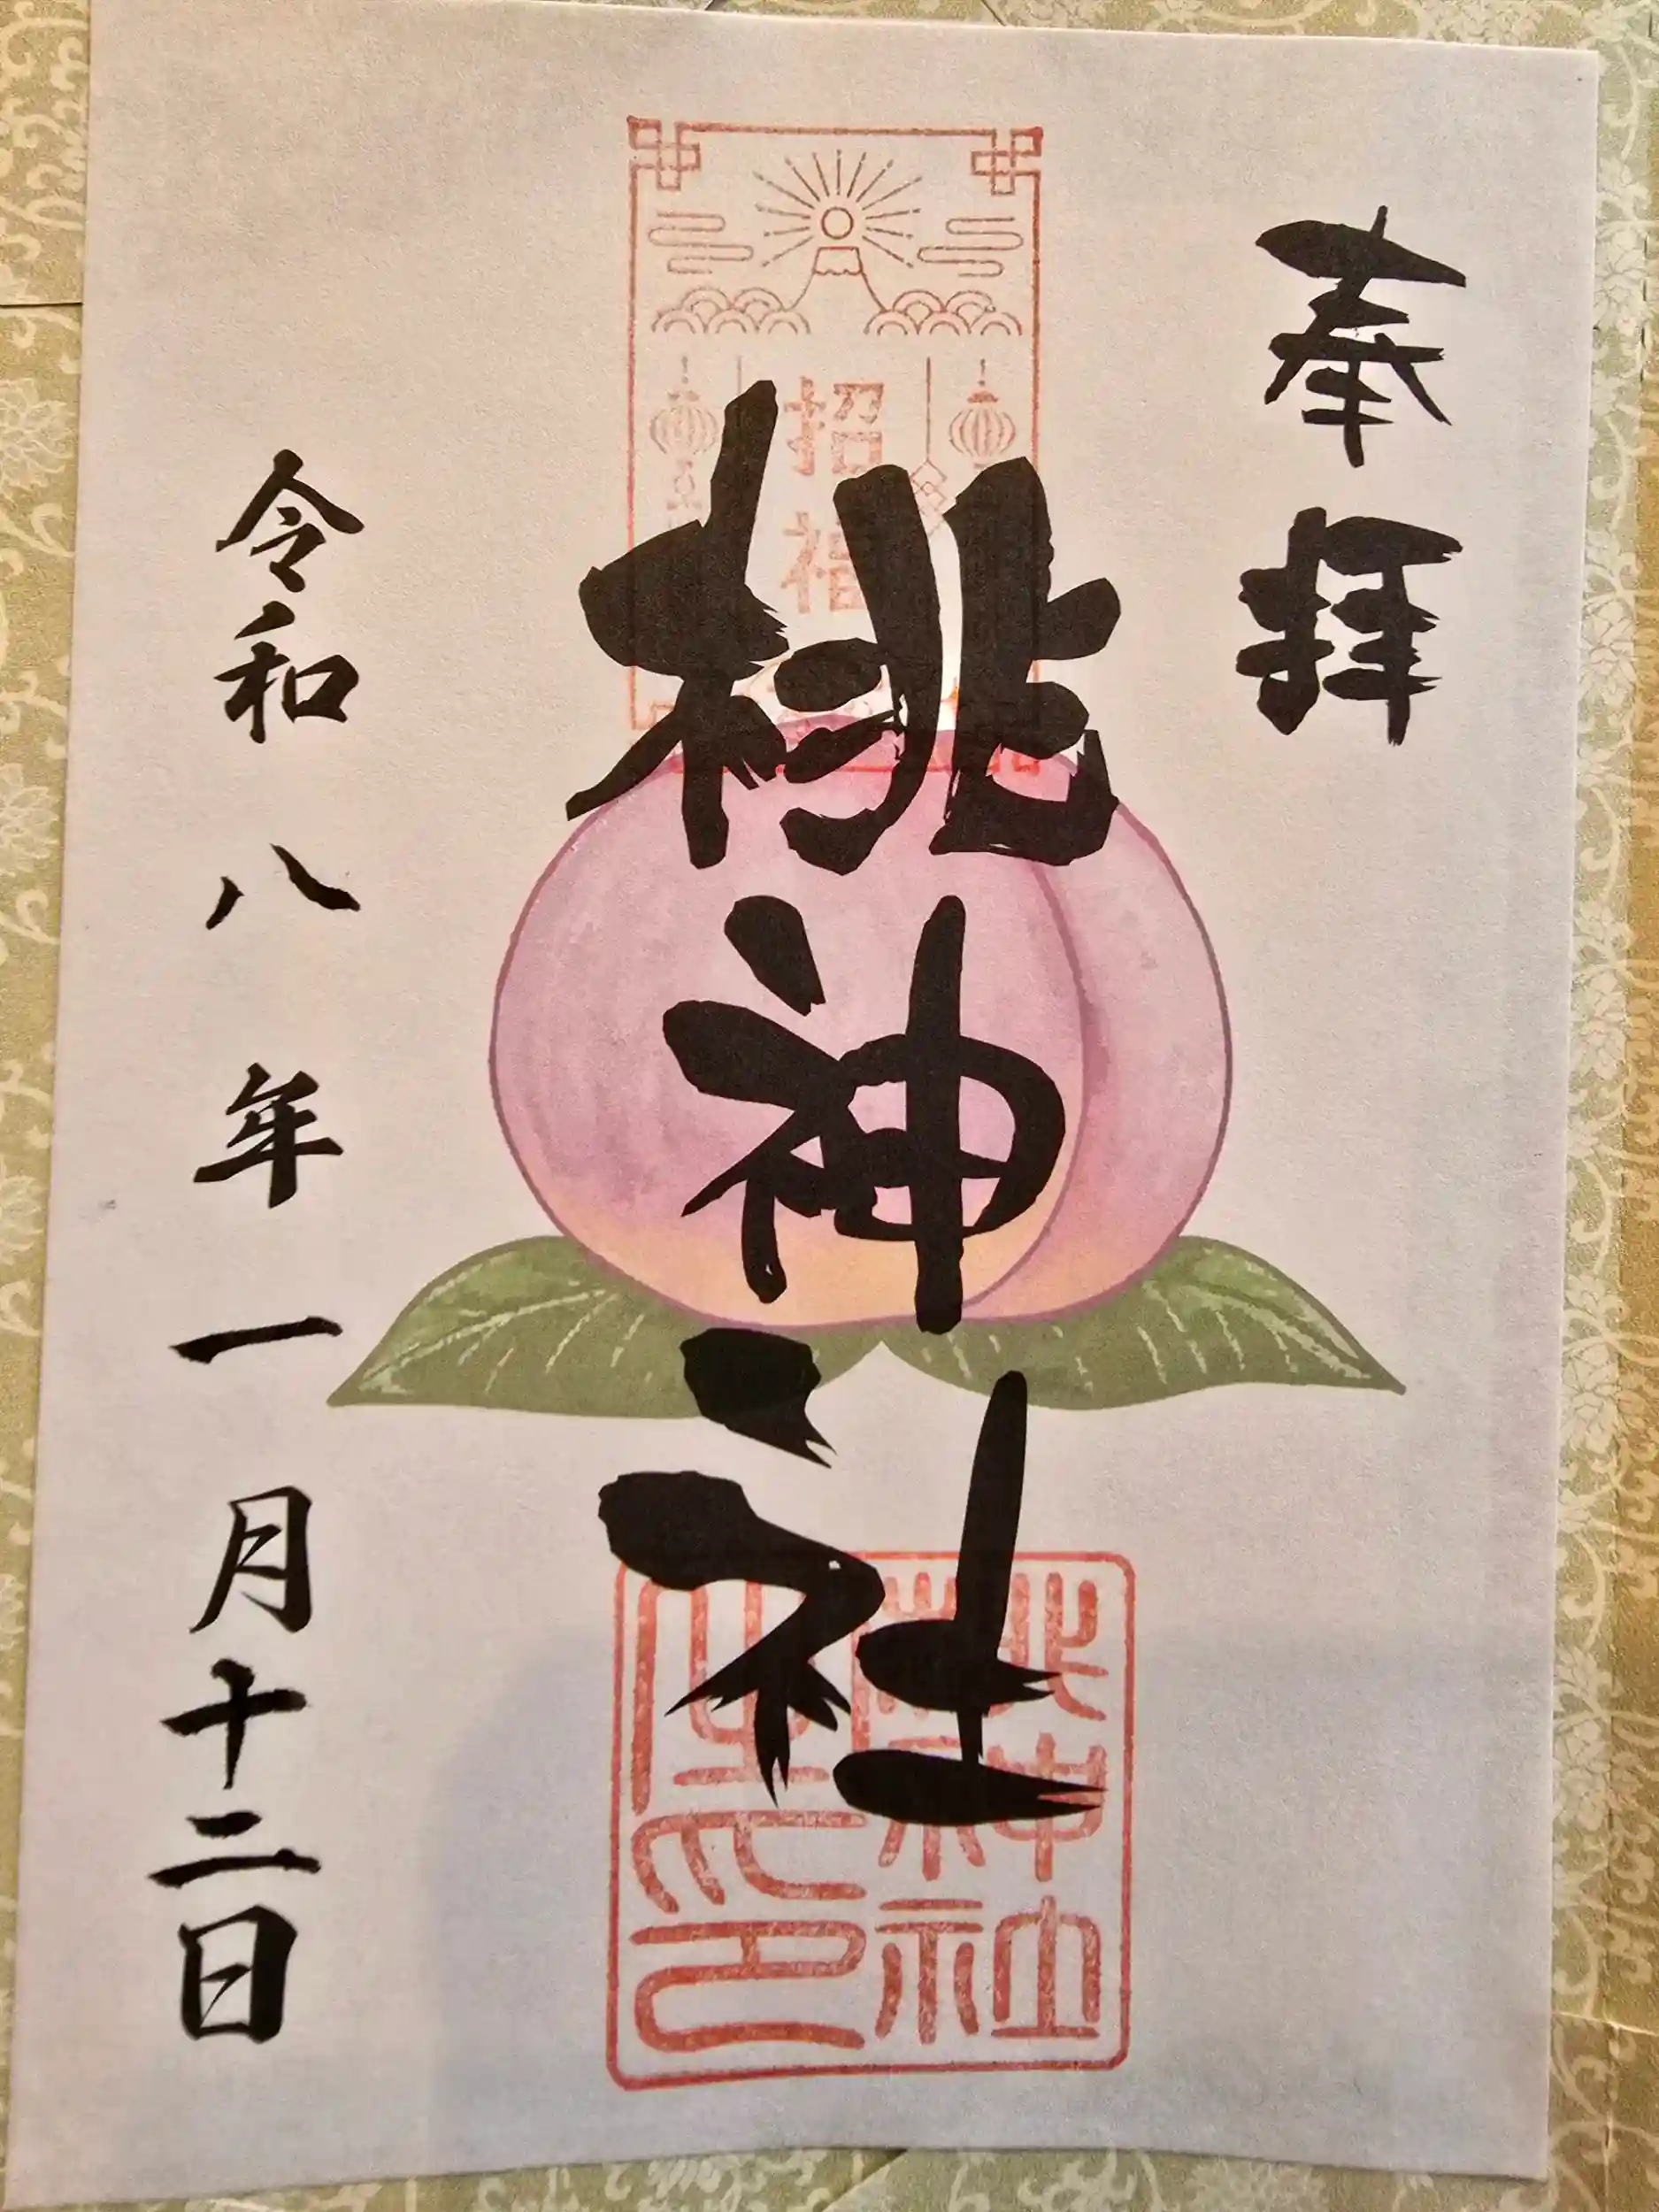 奉拝
招福
桃神社
桃神社之印
令和八年一月十二日